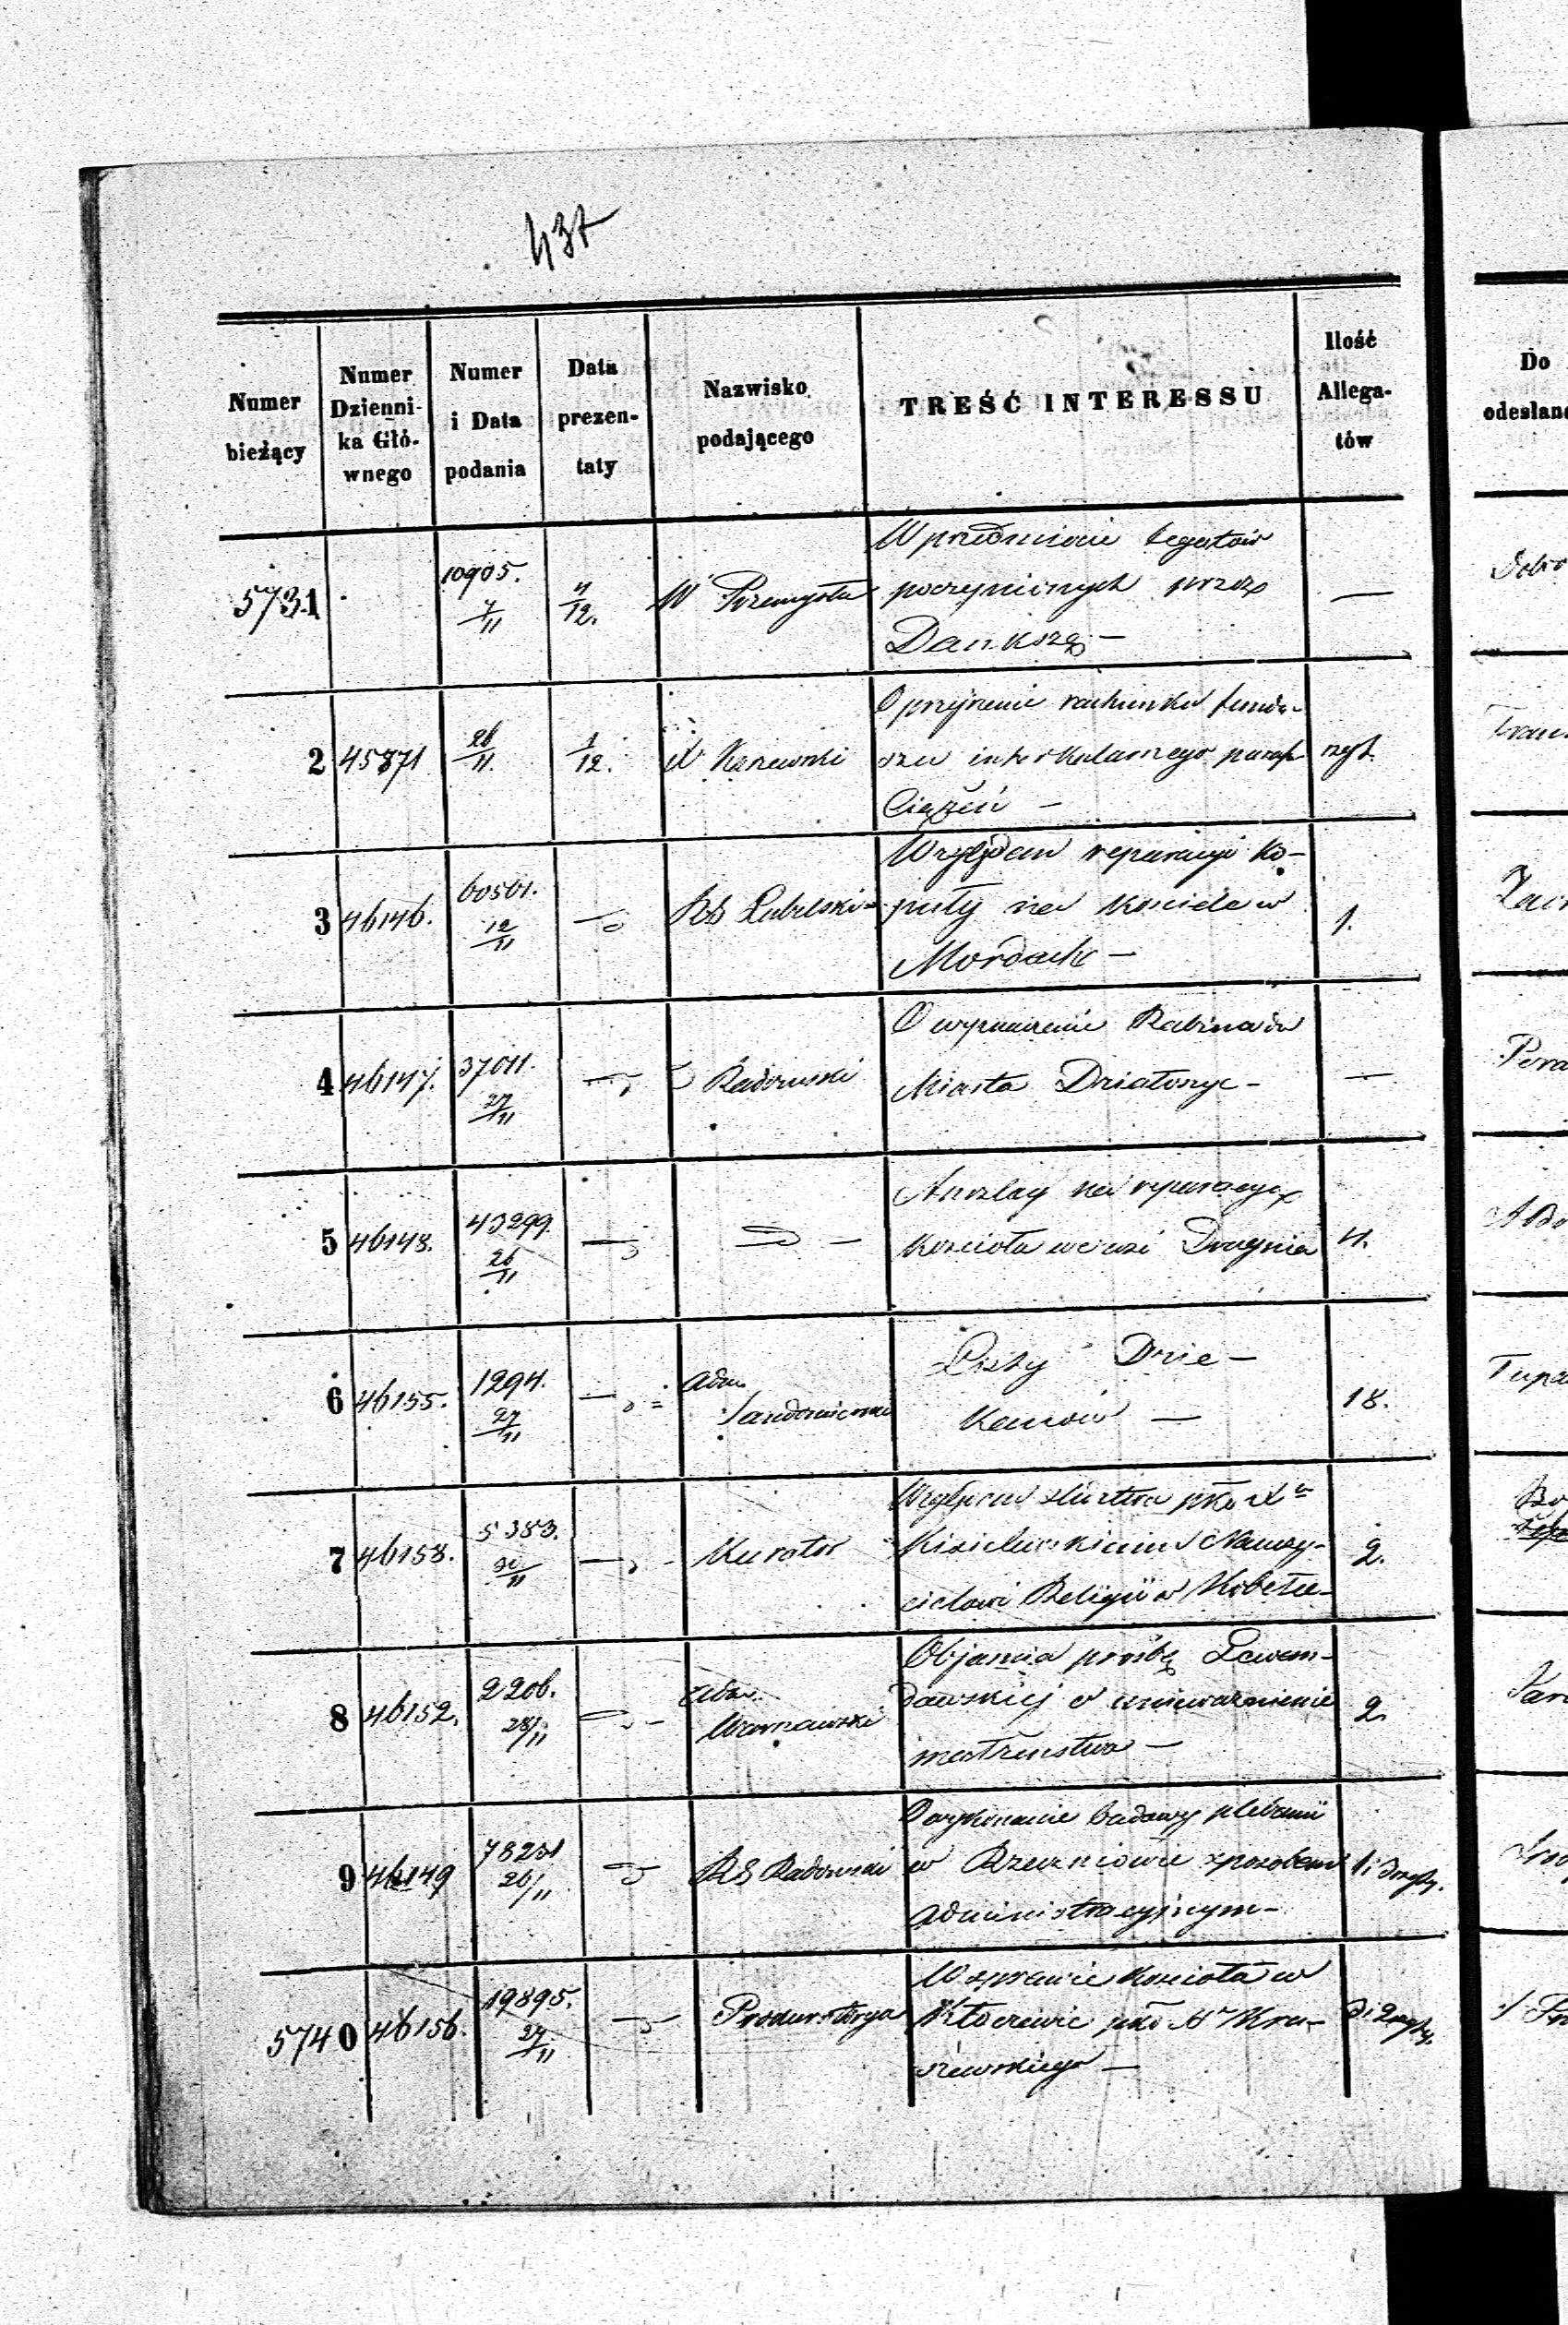 437
Numer bieżący
Numer Dzienni-ka Głó-wnego
Numer i Data podania
Data prezen-taty
Nazwisko podającego
TREŚĆ INTERESSU
Ilość Allega-tów
Do
odesłano
5731 10905. 7/11 4/12. W Przemysłu
W przedmiocie legatów
poczynionych przez
Dankszę —
—
2 45871 26/11. 1/12. Kanewski
O przyjęcie rachunku fundu-
szu interkalarnego paraf.
Ciążeń —
3 46146. 60501. 12/11 RG Lubelski
Względem reparacyi ko-
puły na kościele w
Mordach —
1.
4 46147. 37011. 27/11 Radomski
O wyznaczenie Rabina do
Miasta Działoszyc —
—
5 46148. 43299. 26/11
Anszlag na reparacyę
kościoła we wsi Drugnia
4.
6 46155. 1294. 27/11 Adm. Sandomierski
Listy Dzie-
kanów —
18.
7 46158. 5383. 30/11 Kurator
Względem
Nauczy-
cielowi Religii w
2.
8 46152. 2206. 28/11 Adm. Warszawski
Objaśnia prośbę Lewan-
dowskiej o unieważnienie
małżeństwa —
2
9 46149 78251 26/11 RG Radomski
O wykonanie budowy plebanii
w Rzeczniowie sposobem
administracyjnym —
5740 46156. 19895. 27/11 Prokuratorya
W sprawie kościoła w
Kłoczewie pko Mu Kra-
szewskiego —